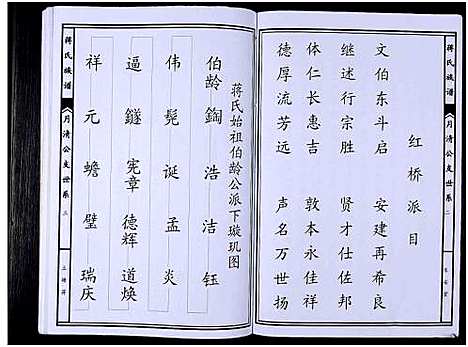 红桥派目
文伯东斗启 安建再希良
继述行宗胜 贤才佐邦
体仁长惠吉 敦本永佳祥
德厚流芳远 声名万世扬
蒋氏族谱
月清公支世系
二
蒋氏始祖伯龄公派下璇玑图
伯龄 鋾 浩 洁 钰
伟 髡 诞 孟 炎
逼 鐩 宪章 德辉 道焕
祥 元 蟾 璧 瑞庆
蒋氏族谱
月清公支世系
三